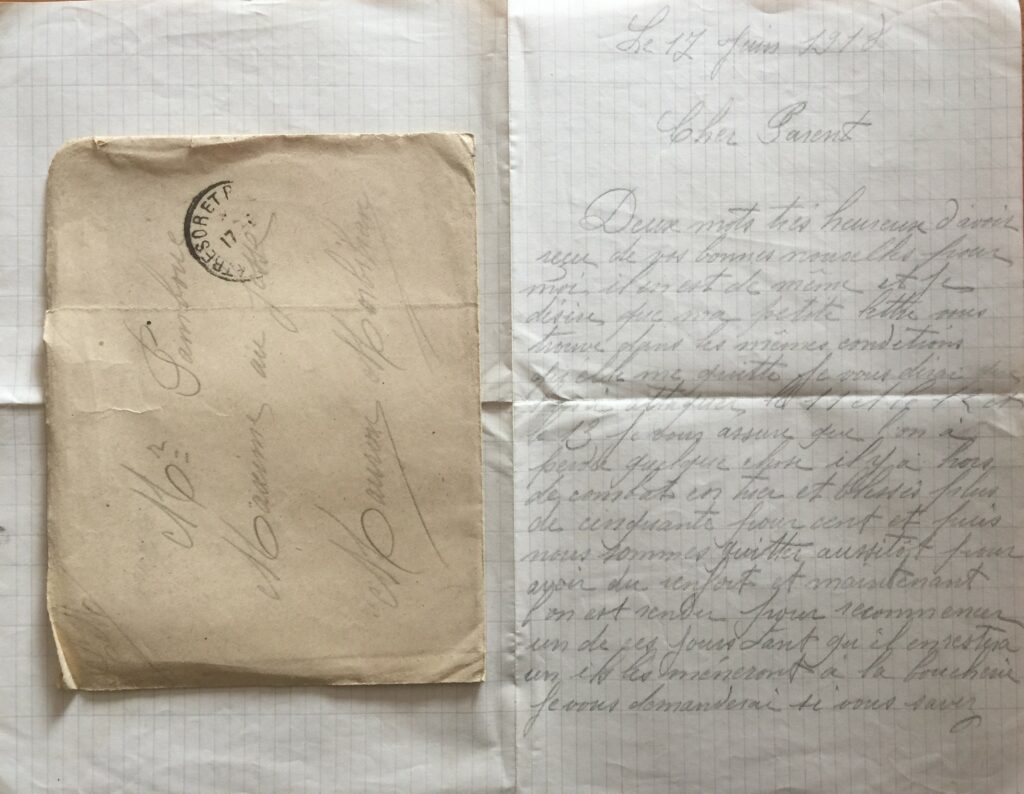 TRESOR ET P
17
Mr
Maxime au
Mauron Morbihan
Le 17 Juin 1918
Cher Parent
Deux mots très heureux d'avoir
reçu de vos bonnes nouvelles pour
moi il en est de même et Je
désire que ma petite lettre vous
trouve dans les mêmes conditions
me quitte Je vous dirai
attaquer le 11 et le 12
le 13 Je vous assure que l'on à
perdu quelque chose il y à hors
de combat en tuer et blessés plus
de cinquante pour cent et puis
nous sommes quitter aussitôt pour
avoir du renfort et maintenant
l'on est rendu pour recommencer
un de ces jours tant qu'il en restera
un ils les mèneront à la boucherie
Je vous demanderai si vous savez